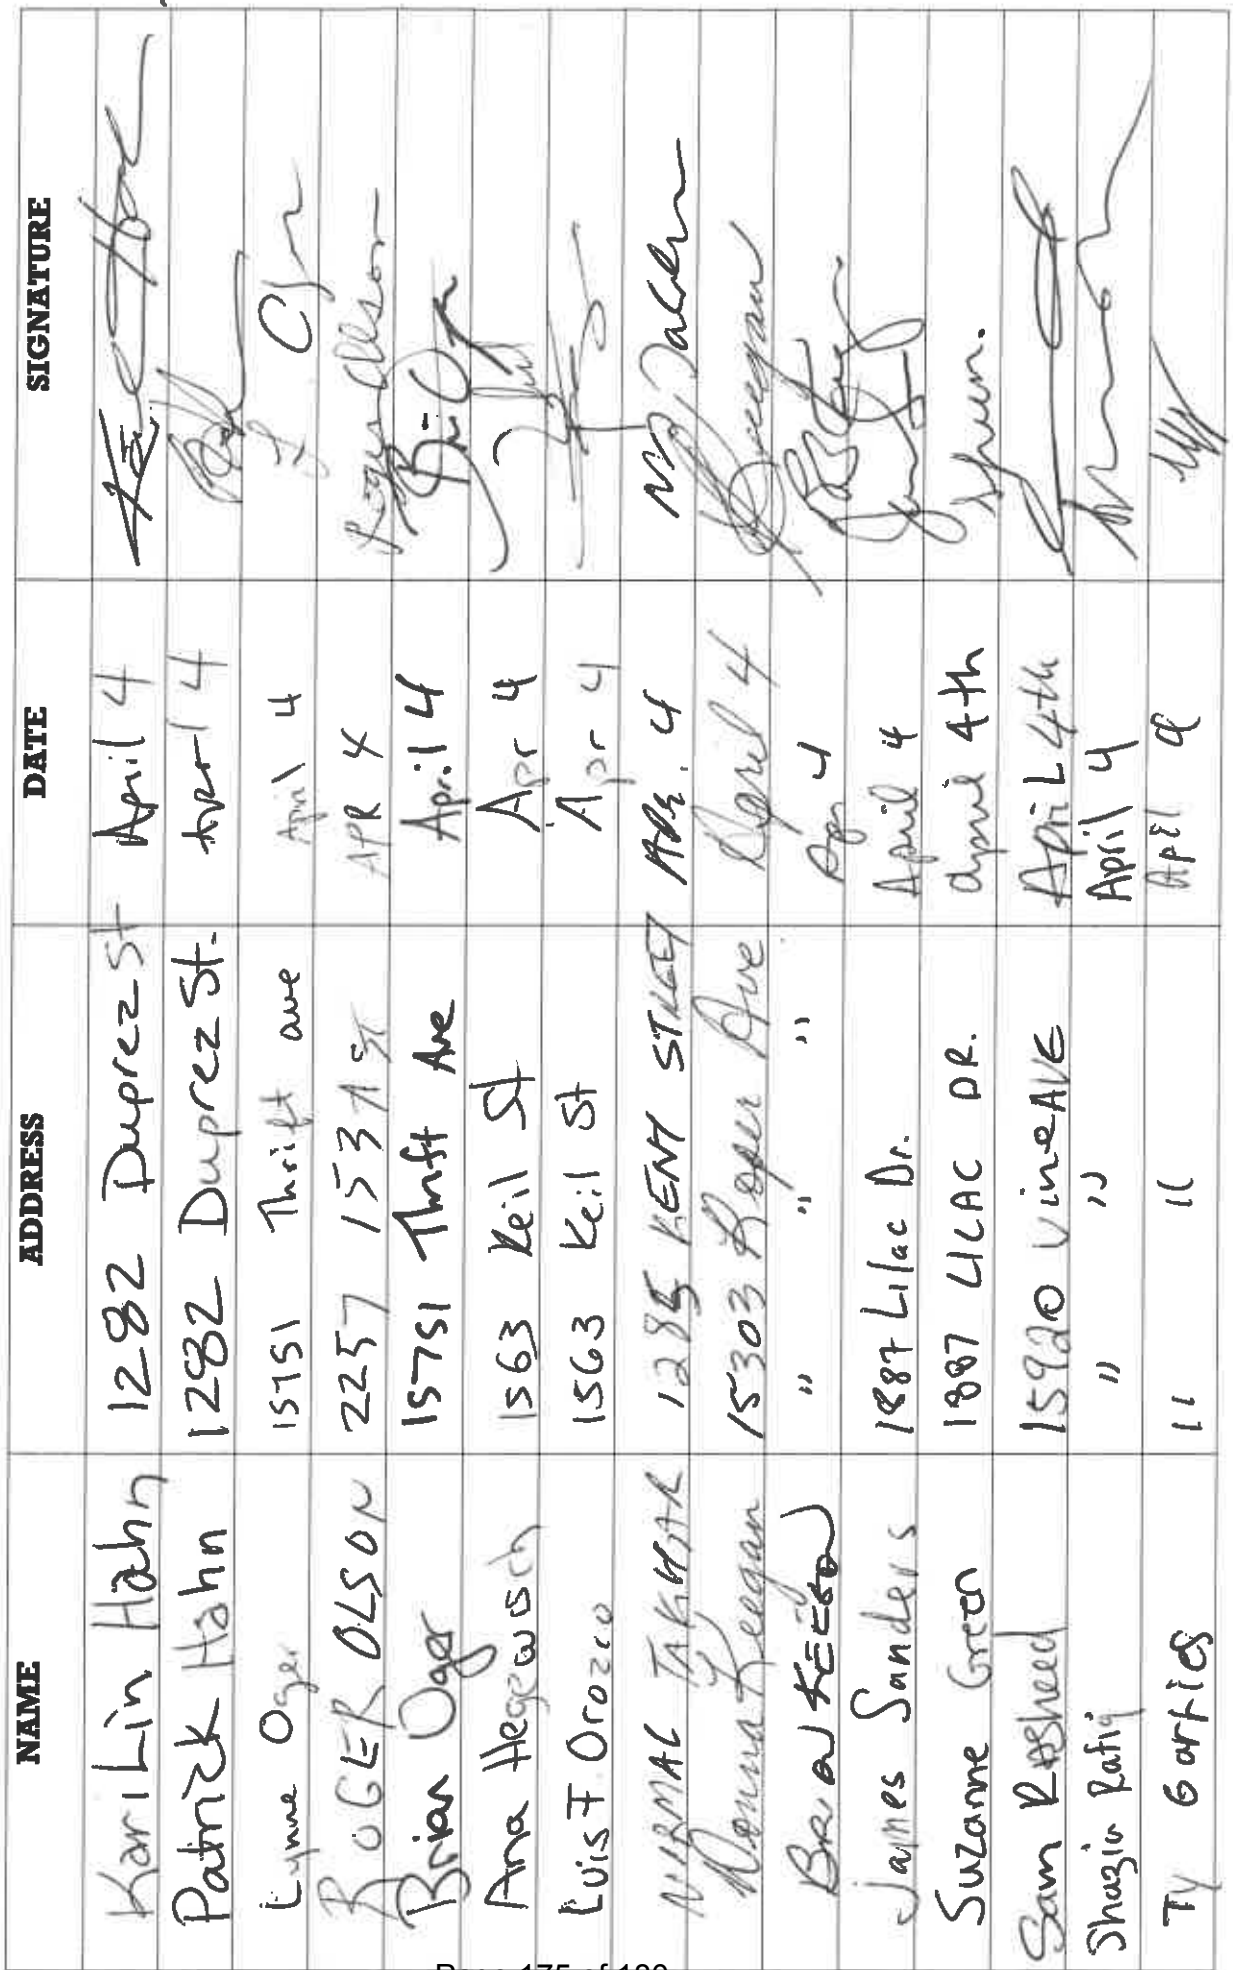 NAME ADDRESS DATE SIGNATURE
Kari Lin Hahn 1282 Duprez St April 4
Patrick Hahn 1282 Duprez St. April 4
Lynne Oger 15751 Thrift ave April 4
ROGER OLSON 2257 153A St APR 4 Roger Olson
Brian Oger 15751 Thrift Ave April 4
Ana Hegewisch 1563 Keil St Apr 4
Luis F Orozco 1563 Keil St Apr 4
NIRMAL TAKHAR 1285 KENT STREET APR. 4
Donna Keegan 15303 Roper Ave April 4 Keegan
" " " Apr 4
James Sanders 1887 Lilac Dr. April 4
Suzanne Green 1887 LILAC DR. April 4th
Sam RASheed 15920 vine AVE ApriL 4th
Shazia Rafiq " " April 4
Ty Gorties " " April 4
Page 175 of